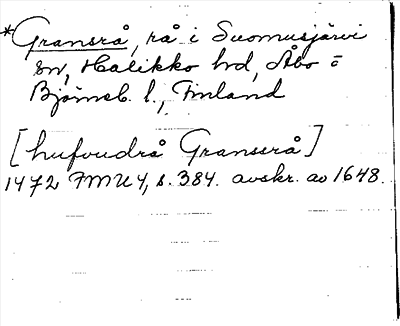 *Gransrå, rå i Suomusjärvi
sn, Halikko hd, Åbo o
Björneb. l., Finland
[hufvudrå Gransrå]
1472 FMU 4, s. 384. avskr. av 1648.